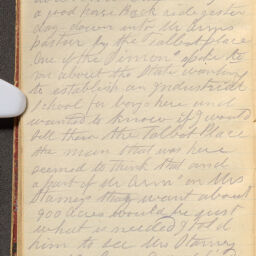 a good horse Back ride yester
day down into Mr Arms
pasture by the Talbot place
One of the "Pinion" spoke to
me about the State wanting
to establish an Industrial
School for boys here and
wanted to know if I would
sell them the Talbot Place
the man that was here
seemed to think that and
a part of Mr Arm' on Mrs
Stameys they want about
900 acres would be just
what is needed I told
him to see Mrs Stamey